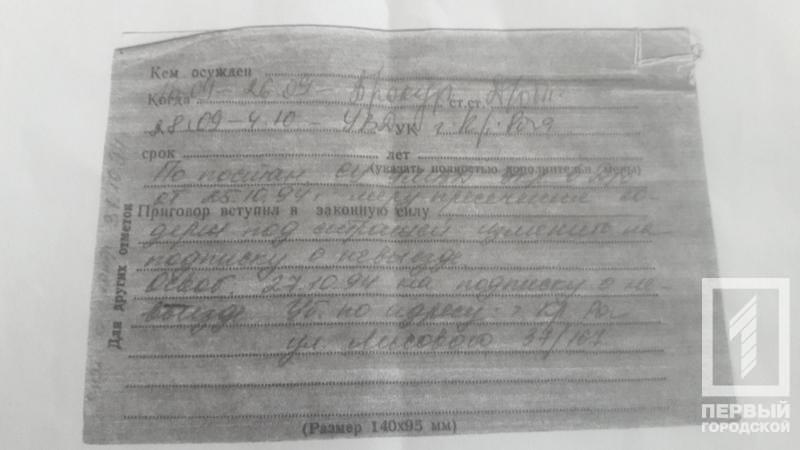 Кем осужден
16.09 – 26.09 – Прокур
Когда ст.ст.
28.09 – 4.10 – УВД УК г. Кр. Рога
срок лет
(указать полностью дополнительн. меры)
По постан
от 25.10.94 г. меру пресечения со-
Приговор вступил в законную силу
держ под стражей изменить на
подписку о невыезде
Освоб. 27.10.94 на подписку о не-
выезде Уб. по адресу: г Кр Рог
ул. 37/167
Для других отметок
31.10.94
(Размер 140х95 мм)
1
ПЕРВЫЙ
ГОРОДСКОЙ